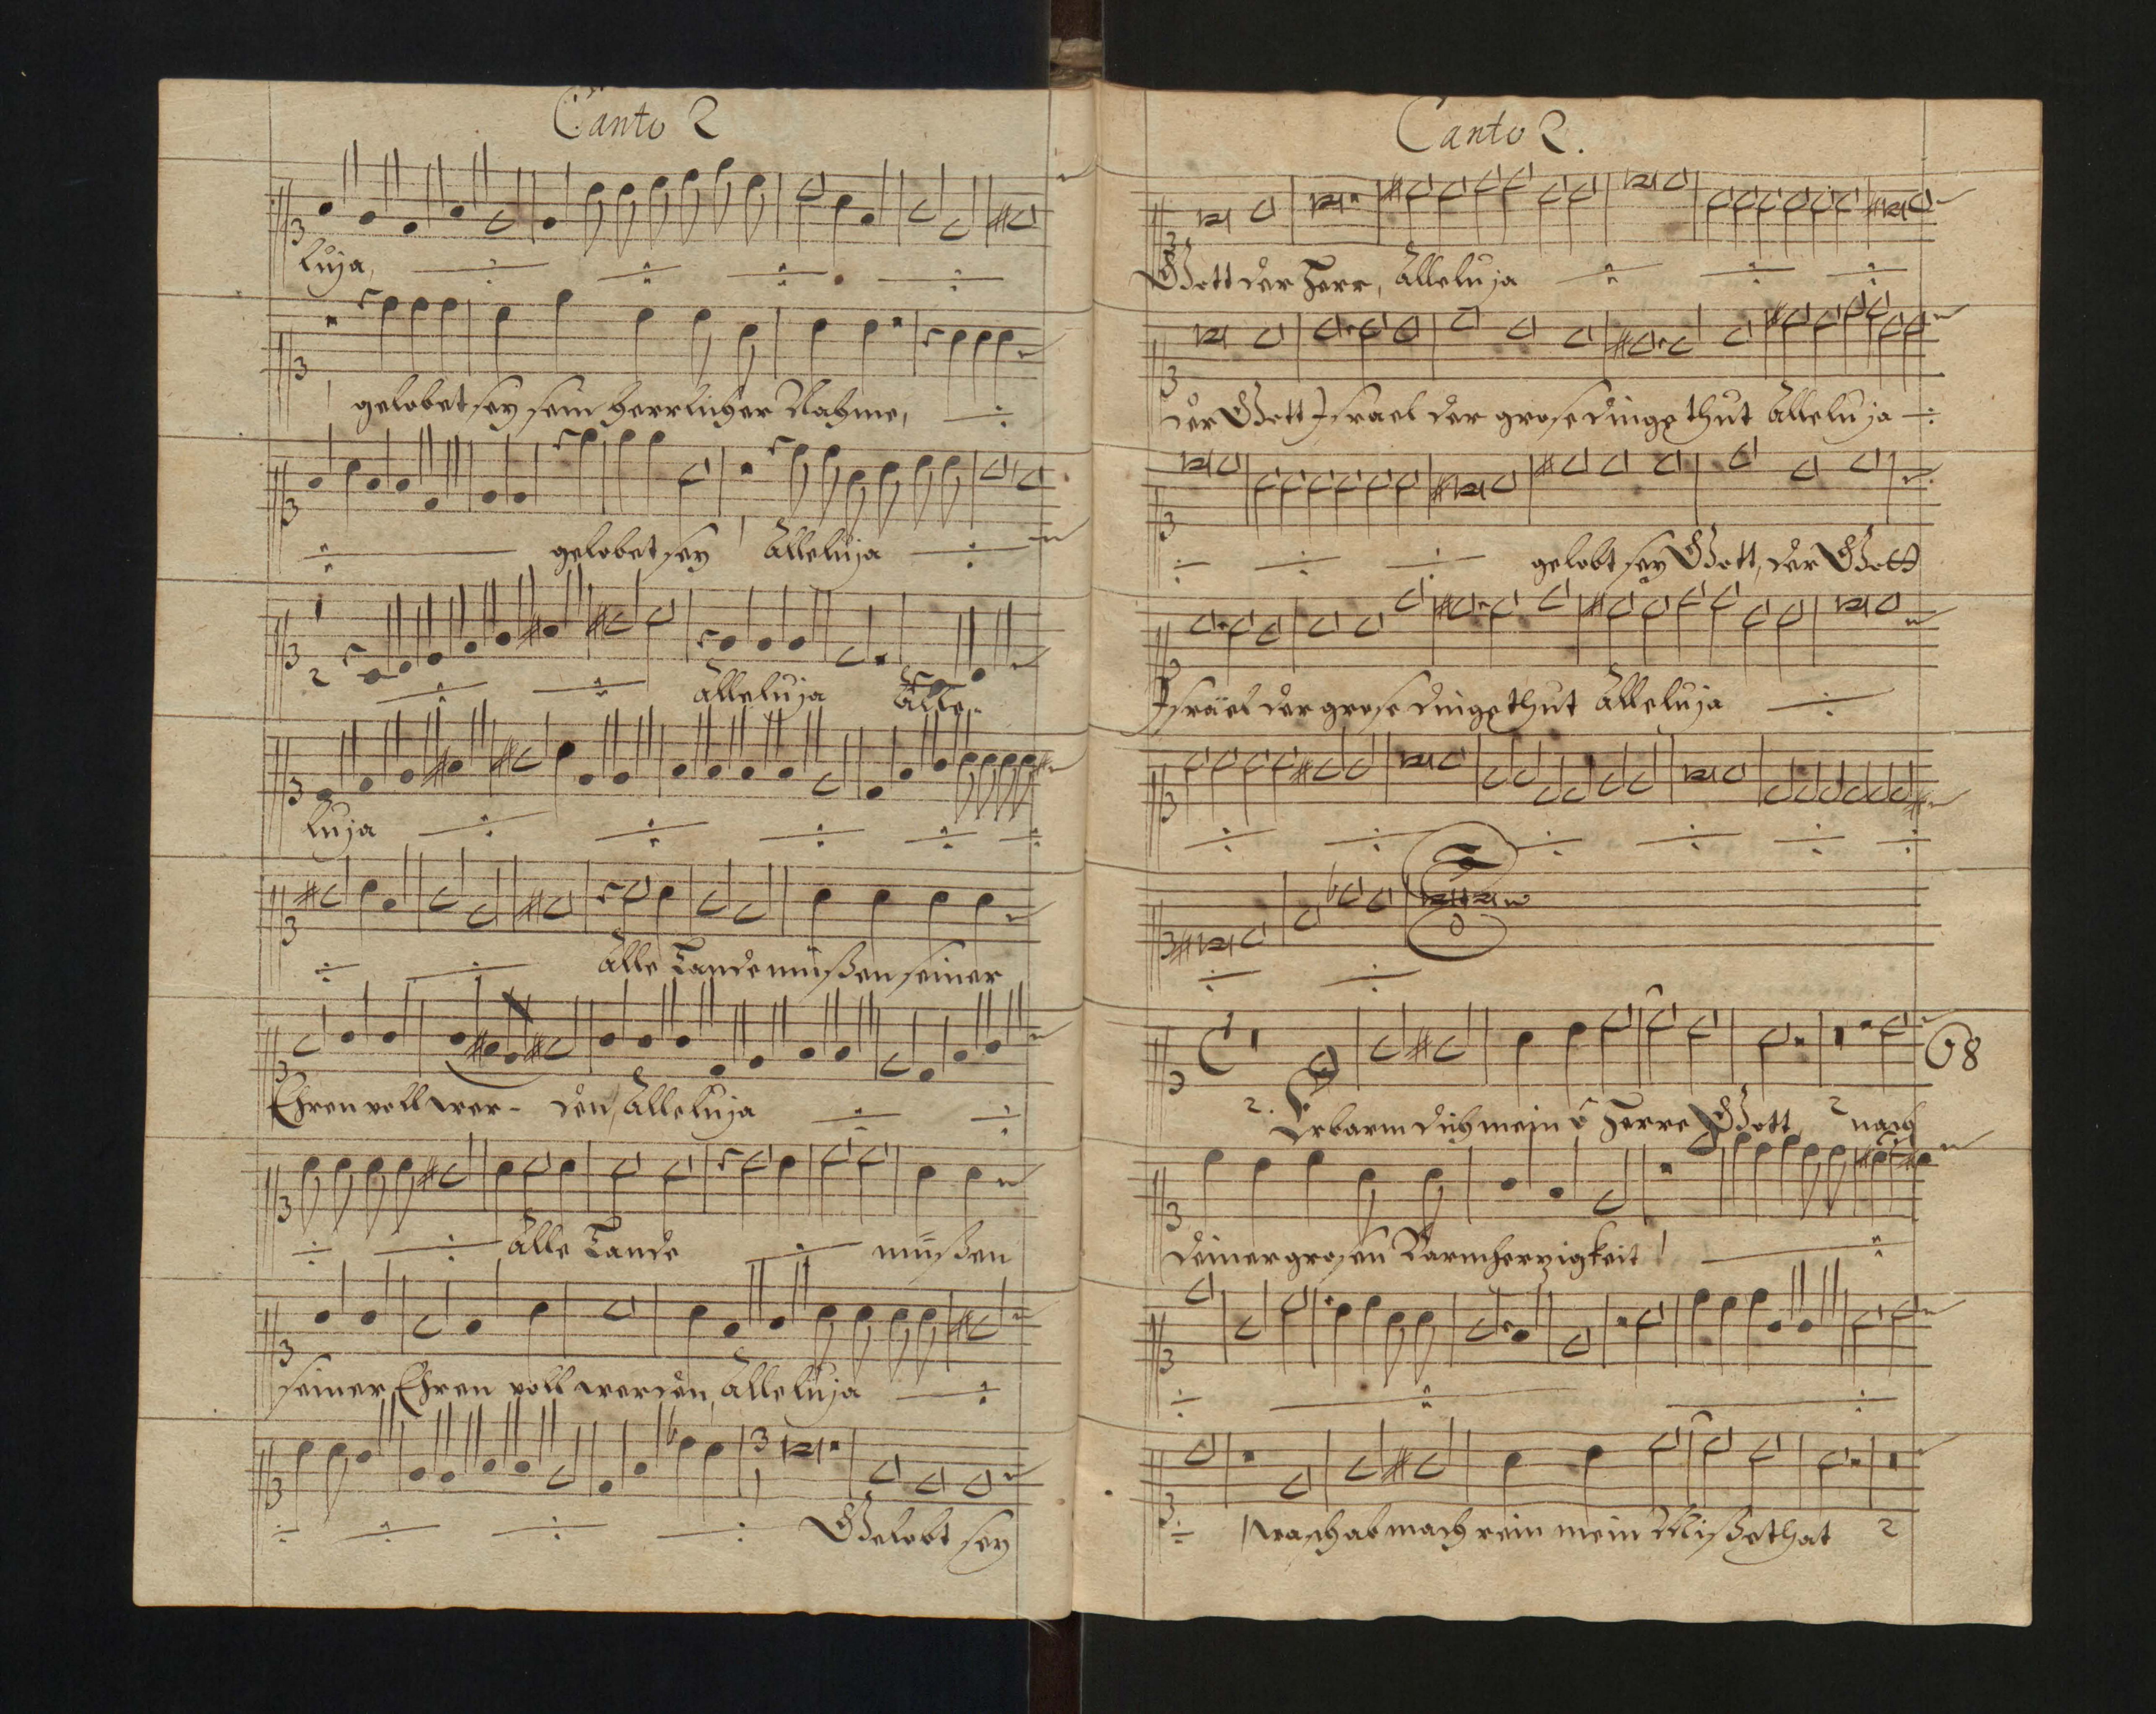 Canto 2
luja,
gelobet sey sein herrlicher Nahme,
gelobet sey Alleluja
2 Alleluja Alle-
luja
Alle Lande müßen seiner
Ehren voll wer- den, Alleluja
Alle Lande müßen
seiner Ehren voll werden, Alleluja
3
Gelobt sey
Canto 2.
Gott der Herr, Alleluja
der Gott Israel der grose dinge thut Alleluja
gelobt sey Gott, der Gott
Israel der grose dinge thut Alleluja
68
2. Erbarm dich mein ô Herre Gott 2 nach
deiner grosen Barmherzigkeit
wasch ab mach rein mein Mißethat 2